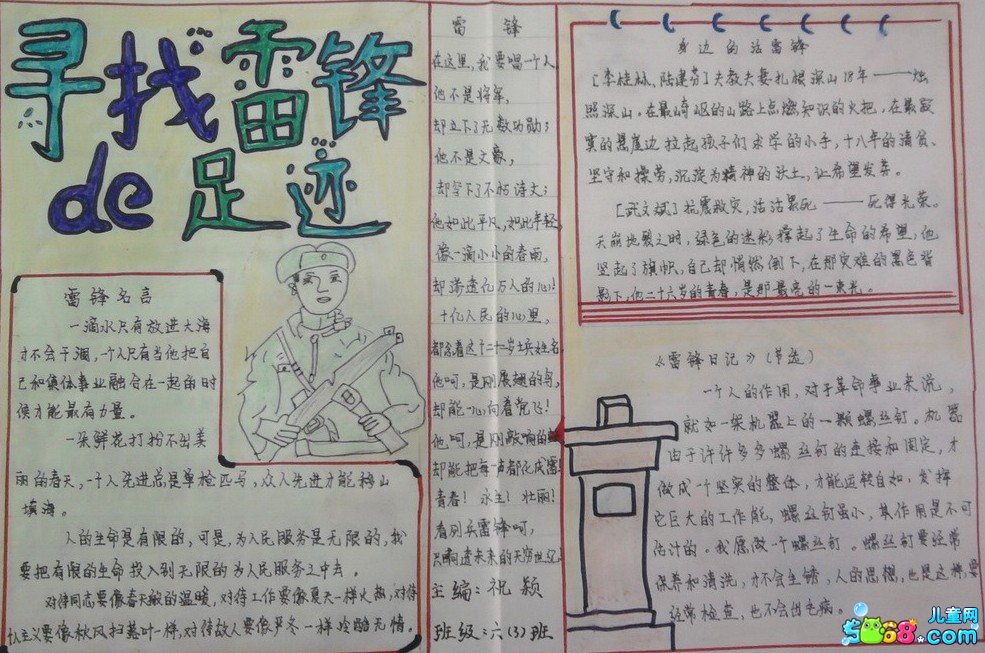 寻找雷锋
de足迹
雷锋名言
一滴水只有放进大海
才不会干涸,一个人只有当他把自
己和集体事业融合在一起的时
候才能最有力量。
一朵鲜花打扮不出美
丽的春天,一个人先进总是单枪匹马,众人先进才能移山
填海。
人的生命是有限的,可是,为人民服务是无限的,我
要把有限的生命投入到无限的为人民服务之中去。
对待同志要像春天般的温暖,对待工作要像夏天一样火热,对待
主义要像秋风扫落叶一样,对待敌人要像严冬一样冷酷无情。
雷锋
在这里,我要唱一个人
他不是将军,
却立下了无数功勋;
他不是文豪,
却写下了不朽诗文;
他如此平凡,如此年轻,
像一滴小小的春雨,
却渗透亿万人的心!
十亿人民的心里,
都念着这个二十二岁士兵姓名,
他呵,是刚展翅的鸟,
却能一心向着党飞!
他呵,是刚敲响的
却能把每一声都化成雷
青春!永生!壮丽!
看列兵雷锋呵,
主编:祝颖
班级:六(3)班
身边的活雷锋
[李桂林、陆建芬]夫教夫妻扎根深山18年——烛
照深山。在最崎岖的山路上点燃知识的火把,在最寂
寞的悬崖边拉起孩子们求学的小手,十八年的清贫、
坚守和操劳,沉淀为精神的沃土,让希望发芽。
[武文斌]抗震救灾,活活累死——死得光荣。
天崩地裂之时,绿色的迷彩撑起了生命的希望,他
竖起了旗帜,自己却悄然倒下,在那灾难的黑色背
影下,他二十六岁的青春,是那最亮的一束光。
《雷锋日记》(节选)
一个人的作用,对于革命事业来说,
就如一架机器上的一颗螺丝钉。机器
由于许许多多螺丝钉的连接和固定,才
做成一个坚实的整体,才能运转自如,发挥
它巨大的工作能,螺丝钉虽小,其作用是不可
估计的。我愿做一个螺丝钉。螺丝钉要经常
保养和清洗,才不会生锈,人的思想,也是这样,要
经常检查,也不会出毛病。
儿童网
5068.com